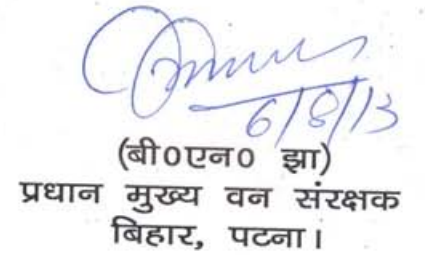 6/8/13
(बी0एन0 झा)
प्रधान मुख्य वन संरक्षक
बिहार, पटना।